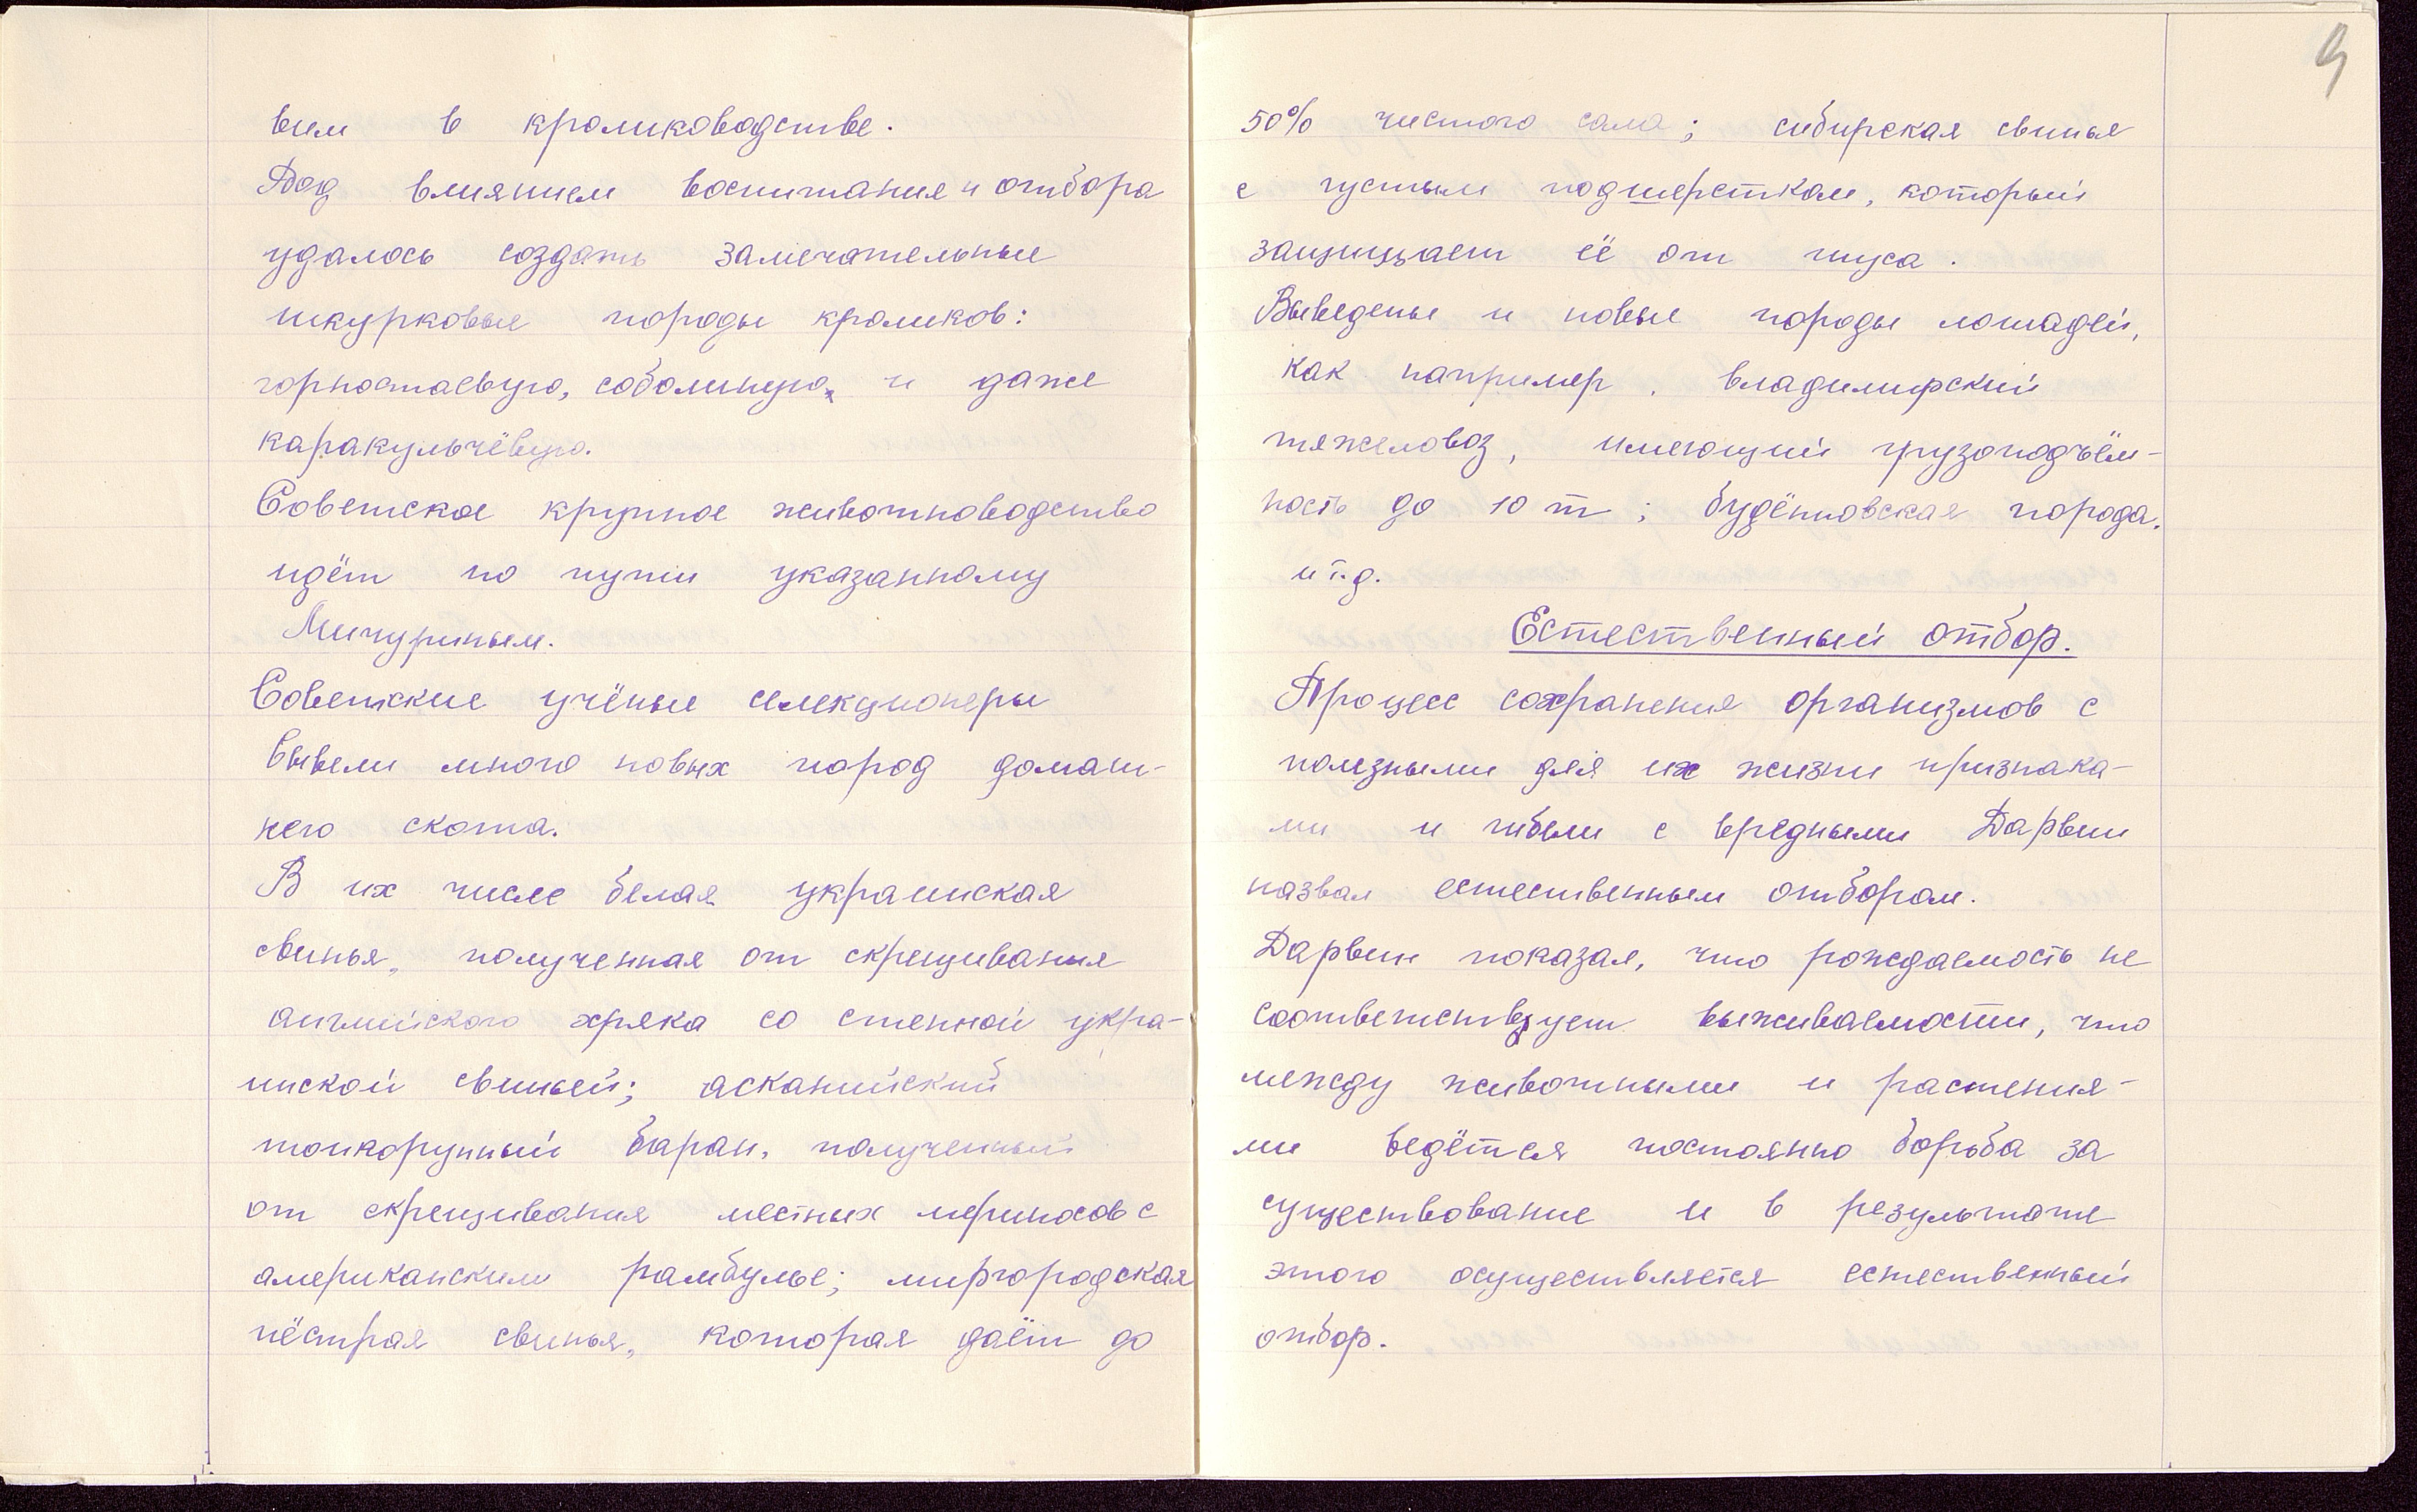 вим в кролиководстве.
Под влиянием воспитания и отбора
удалось создать замечательные
шкурковые породы кроликов:
горностаевую, соболиную, и даже
каракульчёвую.
Советское крупное животноводство
идёт по пути указанному
Мичуриным.
Советские учёные селекционеры
вывели много новых пород домаш-
него скота.
В их числе белая украинская
свинья, полученная от скрещивания
английского хряка со степной укра-
инской свиньей; асканийский
тонкорунный баран, полученный
от скрещивания местных мериносов с
американским рамбулье; миргородская
пёстрая свинья, которая даёт до
9
50% чистого сала; сибирская свинья
с густым подшерстком, который
защищает её от гнуса.
Выведены и новые породы лошадей,
как например, владимирский
тяжеловоз, имеющий грузоподъём-
ность до 10 т; будённовская порода,
и т.д.
Естественный отбор.
Процесс сохранения организмов с
полезными для их жизни признака-
ми и гибели с вредными Дарвин
назвал естественным отбором.
Дарвин показал, что рождаемость не
соответствует выживаемости, что
между животными и растения-
ми ведётся постоянно борьба за
существование и в результате
этого осуществляется естественный
отбор.